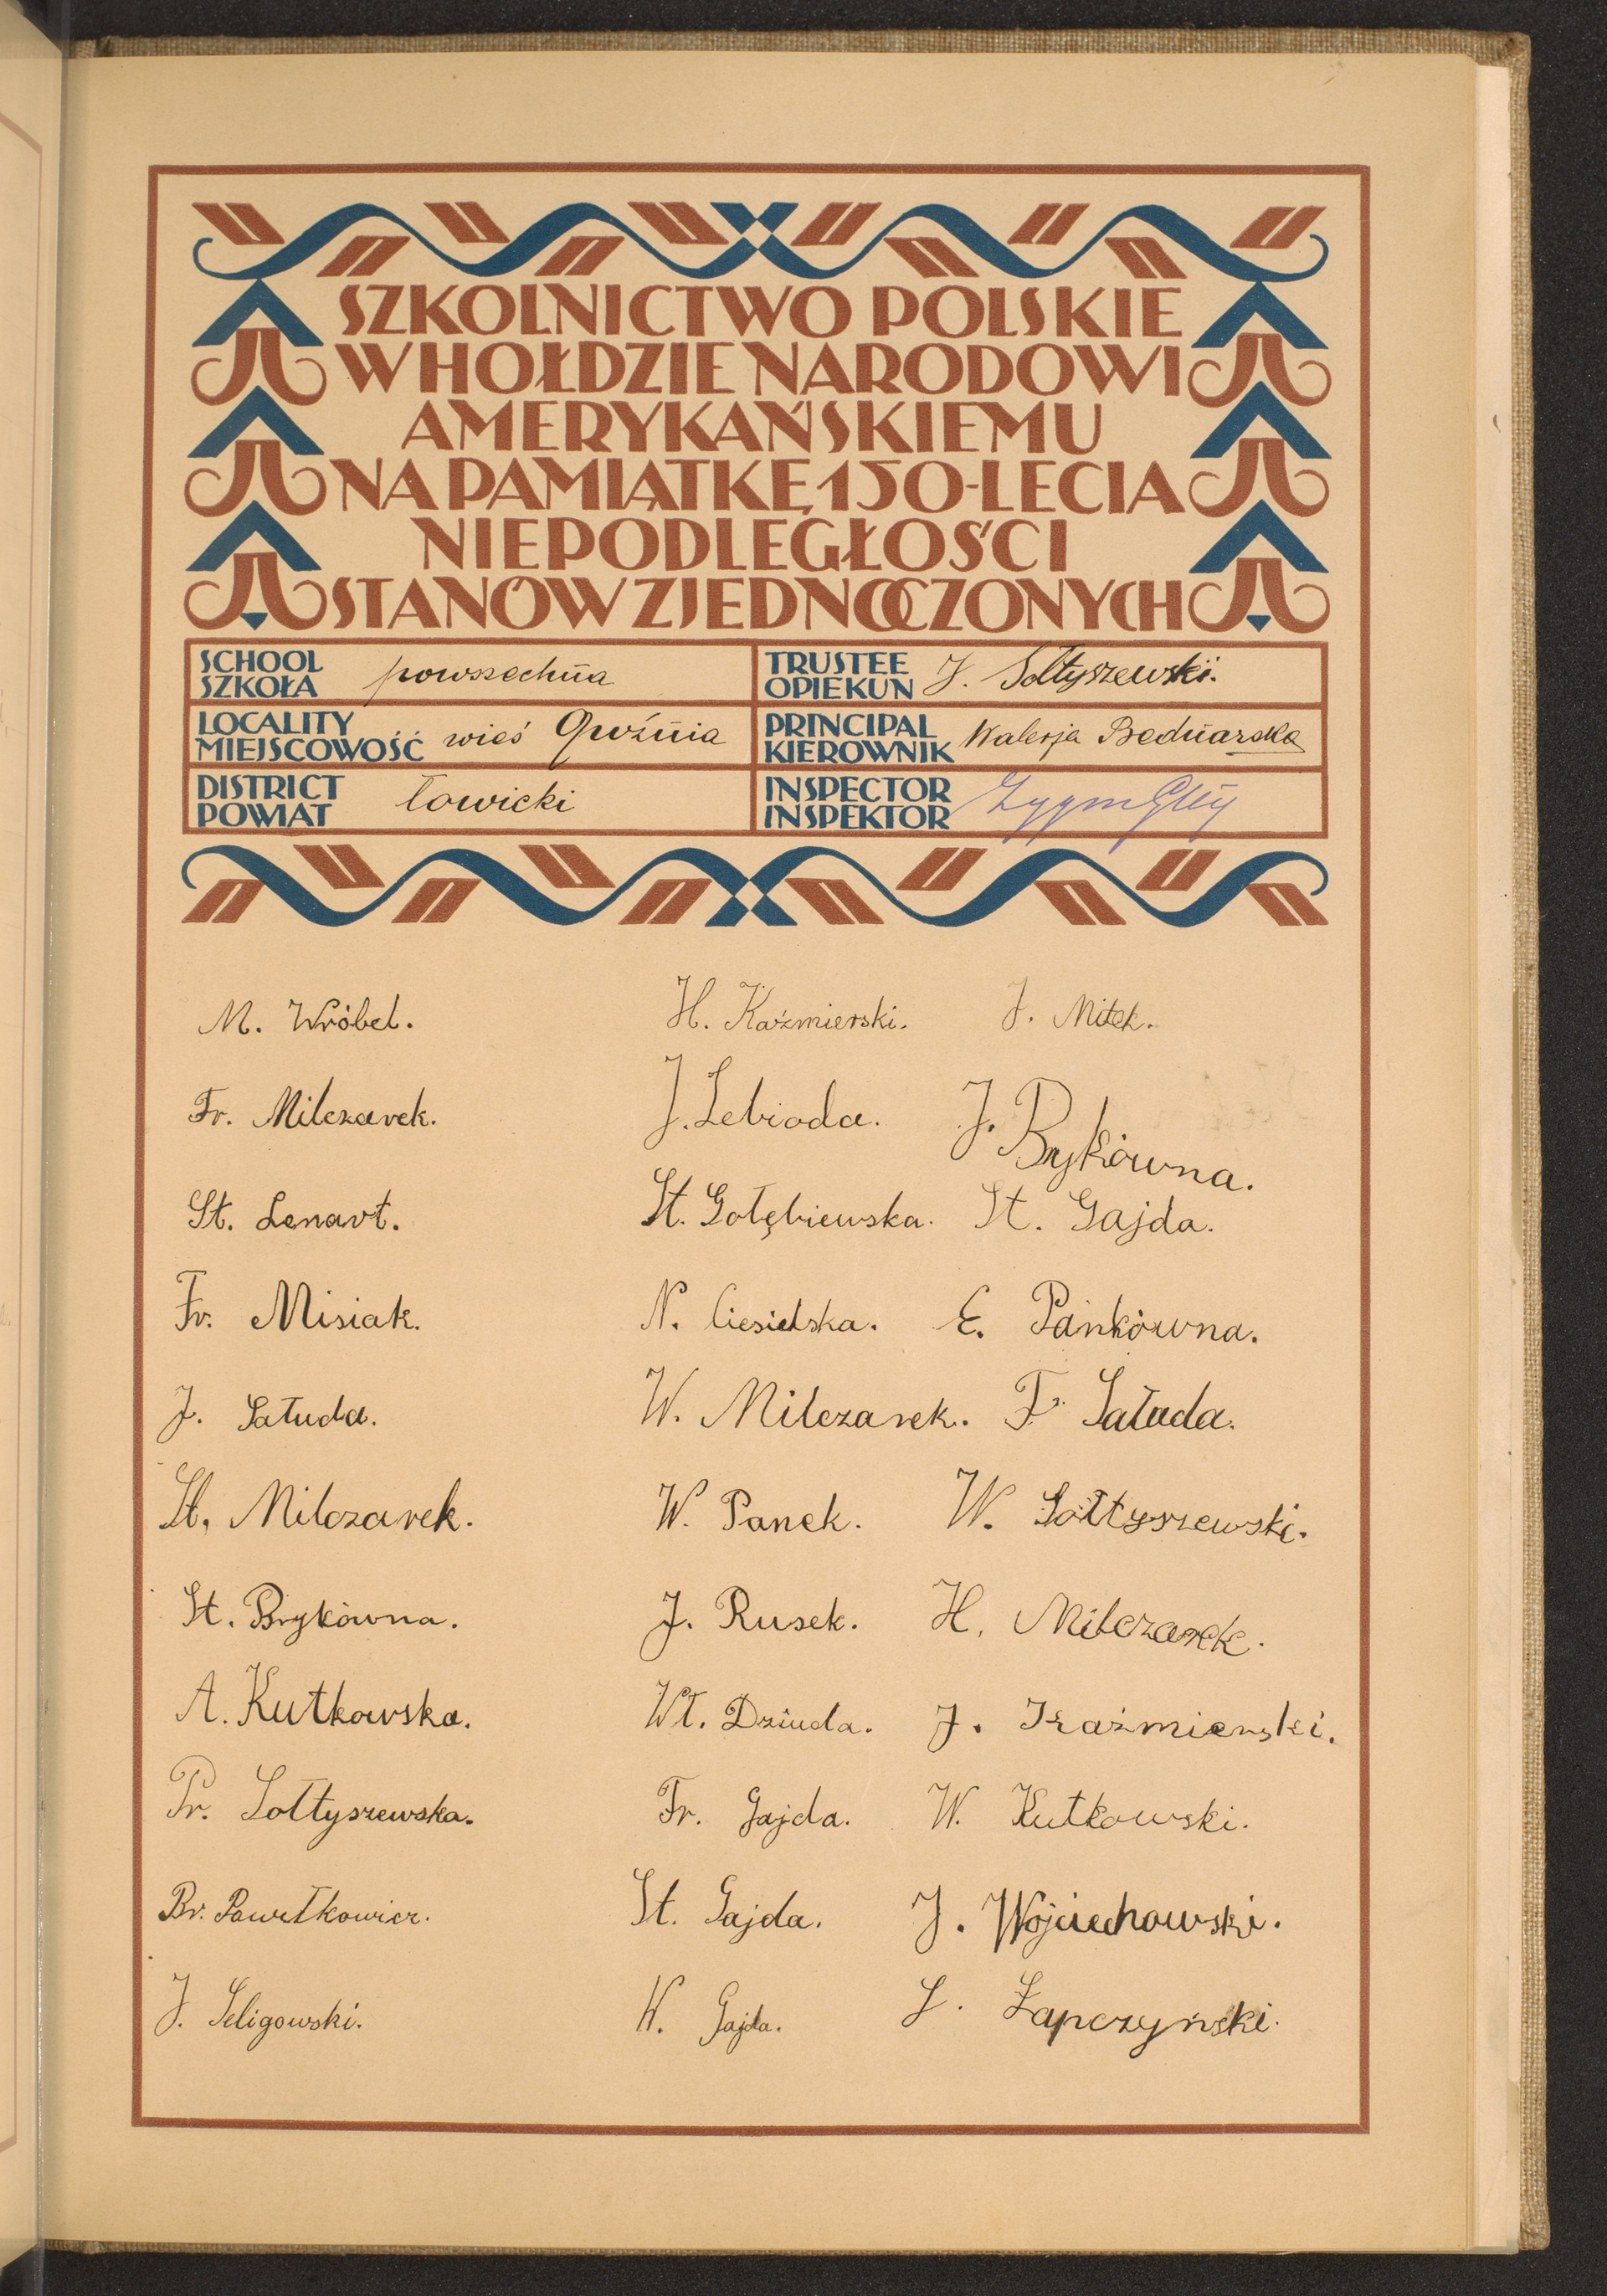 SZKOLNICTWO POLSKIE
W HOŁDZIE NARODOWI
AMERYKAŃSKIEMU
NA PAMIĄTKĘ 150-LECIA
NIEPODLEGŁOŚCI
STANÓW ZJEDNOCZONYCH
SCHOOL
SZKOŁA powszechna
TRUSTEE
OPIEKUN J. Sołtyszewski.
LOCALITY
MIEJSCOWOŚĆ wieś Guźnia
PRINCIPAL
KIEROWNIK Walerja Bednarska
DISTRICT
POWIAT łowicki
INSPECTOR
INSPEKTOR
M. Wróbel. H. Kaźmierski. J. Mitek.
Fr. Milczarek. J. Lebioda. J. Brykówna.
St. Lenart. St. Gołębiewska. St. Gajda.
Fr. Misiak. N. Ciesielska. E. Pankówna.
J. Sałuda. W. Milczarek. F. Sałuda.
St. Milczarek. W. Panek. W. Sołtyszewski.
St. Brykówna. J. Rusek. H. Milczarek.
A. Kutkowska. Wł. Dziuda. J. Kaźmierski.
Pr. Sołtyszewska. Fr. Gajda. W. Kutkowski.
Br. St. Gajda. J. Wojciechowski.
J. Seligowski. W. Gajda. L. Łapczyński.